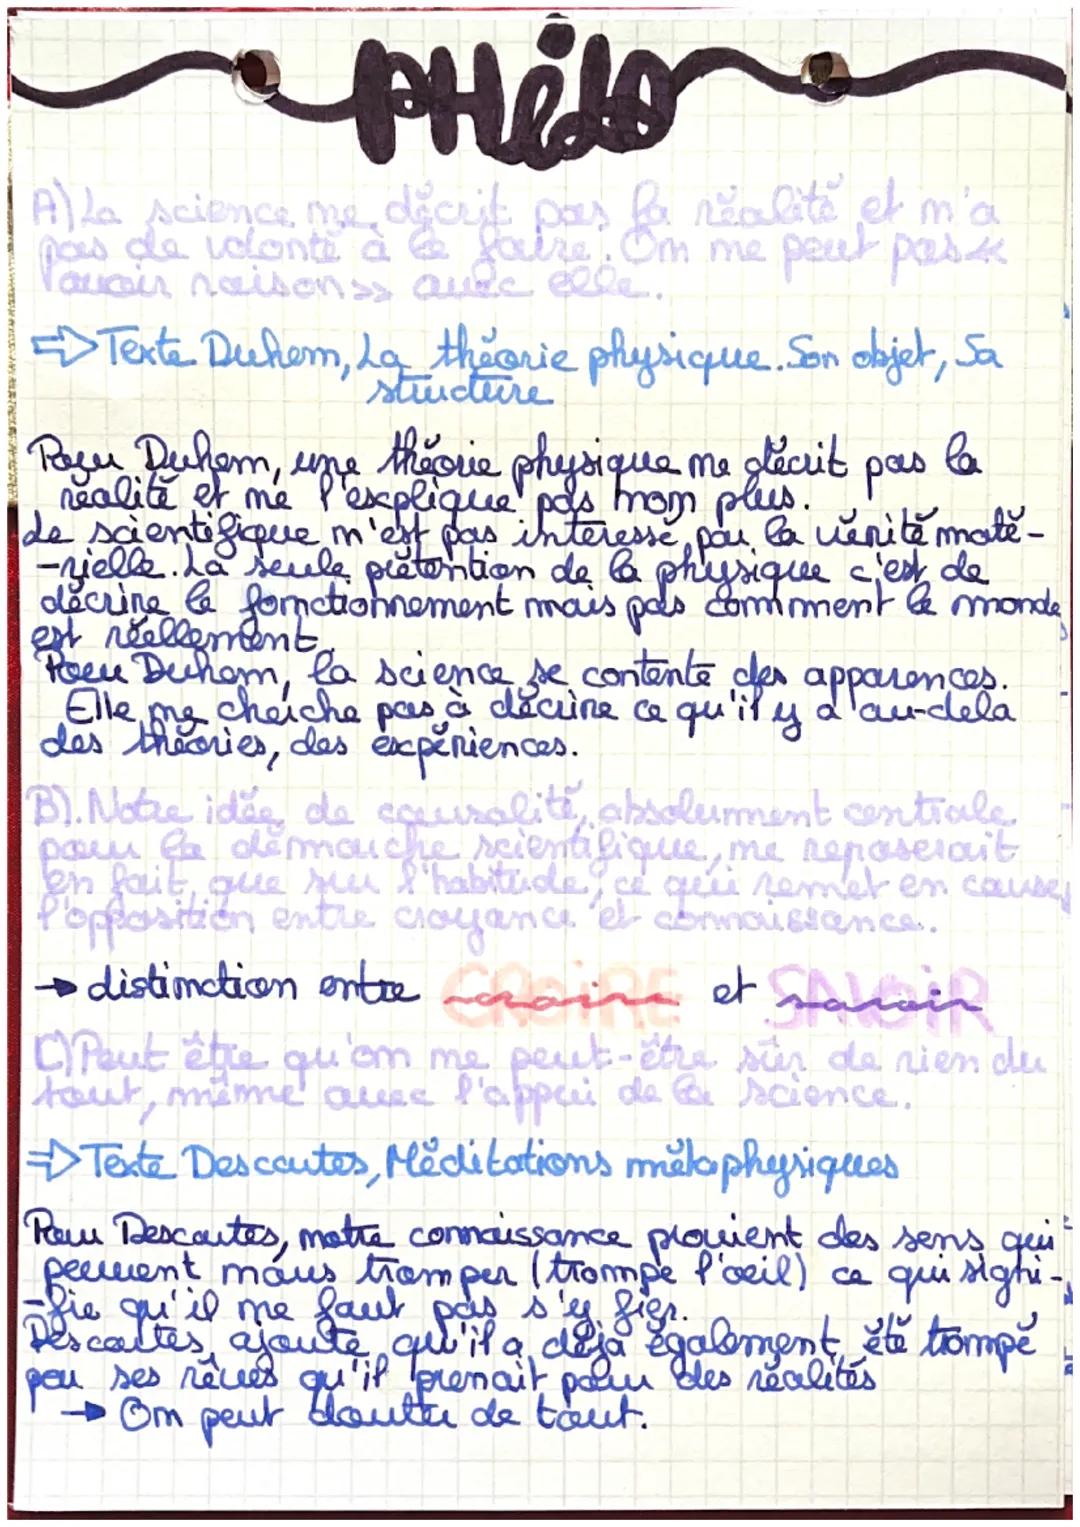 PHilo
A) La science ne décrit pas la réalité et n'a
pas de volonté à le faire. On ne peut pas «
avoir raison >> avec elle.
⇒ Texte Duhem, La théorie physique. Son objet, Sa
structure
Pour Duhem, une théorie physique ne décrit pas la
réalité et ne l'explique pas non plus.
Le scientifique n'est pas interessé par la vérité maté-
-rielle. La seule prétention de la physique c'est de
décrire le fonctionnement mais pas comment le monde
est réellement.
Pour Duhem, la science se contente des apparences.
Elle ne cherche pas à décrire ce qu'il y a au-delà
des théories, des expériences.
B). Notre idée de causalité, absolument centrale
pour la démarche scientifique, ne reposerait
en fait, que sur l'habitude, ce qui remet en cause
l'opposition entre croyance et connaissance.
→ distinction entre CROIRE croire et SAVOIR savoir
C) Peut être qu'on ne peut-être sûr de rien du
tout, même avec l'appui de la science.
⇒ Texte Descartes, Méditations métaphysiques
Pour Descartes, notre connaissance provient des sens qui
peuvent nous tromper (trompe l'oeil) ce qui signi-
-fie qu'il ne faut pas s'y fier.
Descartes ajoute qu'il a déjà également été trompé
par ses rêves qu'il prenait pour des réalités
→ On peut douter de tout.